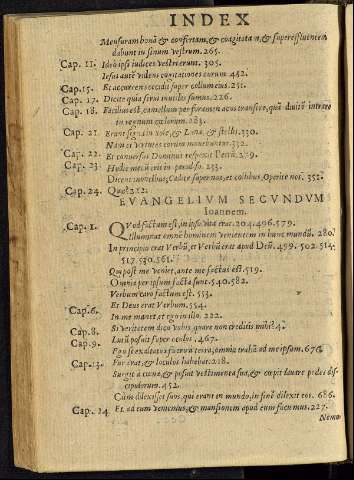 INDEX
Mensuram bonã & confertam, & coagitatam, & supereffluentem
dabunt in sinum vestrum. 265.
Cap. 11. Ideò ipsi iudices vestri erunt. 305.
Iesus autẽ videns cogitationes eorum 452.
Cap. 15. Et accurrens cecidit super collum eius. 251.
Cap. 17. Dicite quia serui inutiles sumus. 226.
Cap. 18. Facilius est, camelum per foramen acus transire, quã diuitẽ intrare
in regnum cælorum. 283.
Cap. 21. Erunt signa in sole, & Luna, & stellis. 330.
Nam et virtutes cœlorum mouebuntur. 332.
Cap. 22. Et conuersus Dominus respexit Petrũ. 219.
Cap. 23. Hodie mecũ eris in paradiso. 233.
Dicent montibus, Cadite super nos, et collibus, Operite nos. 352.
Cap. 24.
EVANGELIVM SECVNDVM
Ioannem.
Cap. 1. QVod factum est, in ipso vita erat. 204. 496. 579.
Illuminat omnẽ hominem venientem in hunc mundũ. 280.
In principio erat Verbũ, et Verbũ erat apud Deũ. 499. 502. 514.
517. 530. 561.
Qui post me veniet, ante me factus est. 519.
Omnia per ipsum facta sunt. 540. 582.
Verbum caro factum est. 553.
Et Deus erat Verbum. 554.
Cap. 6. In me manet, et ego in illo. 222.
Cap. 8. Si veritatem dico vobis, quare non creditis mihi? 4.
Cap. 9. Lutũ posuit super oculos. 467.
Ego si exaltatus fuero à terra, omnia trahã ad me ipsum. 676.
Cap. 13. Fur erat, & loculos habebat. 218.
Surgit à cœna, & posuit vestimenta sua, & cœpit lauare pedes dis-
cipulorum. 452.
Cùm dilexisset suos, qui erant in mundo, in finẽ dilexit eos. 686.
Cap. 14. Et ad eum veniemus, & mansionem apud eum faciemus. 227.
Nemo